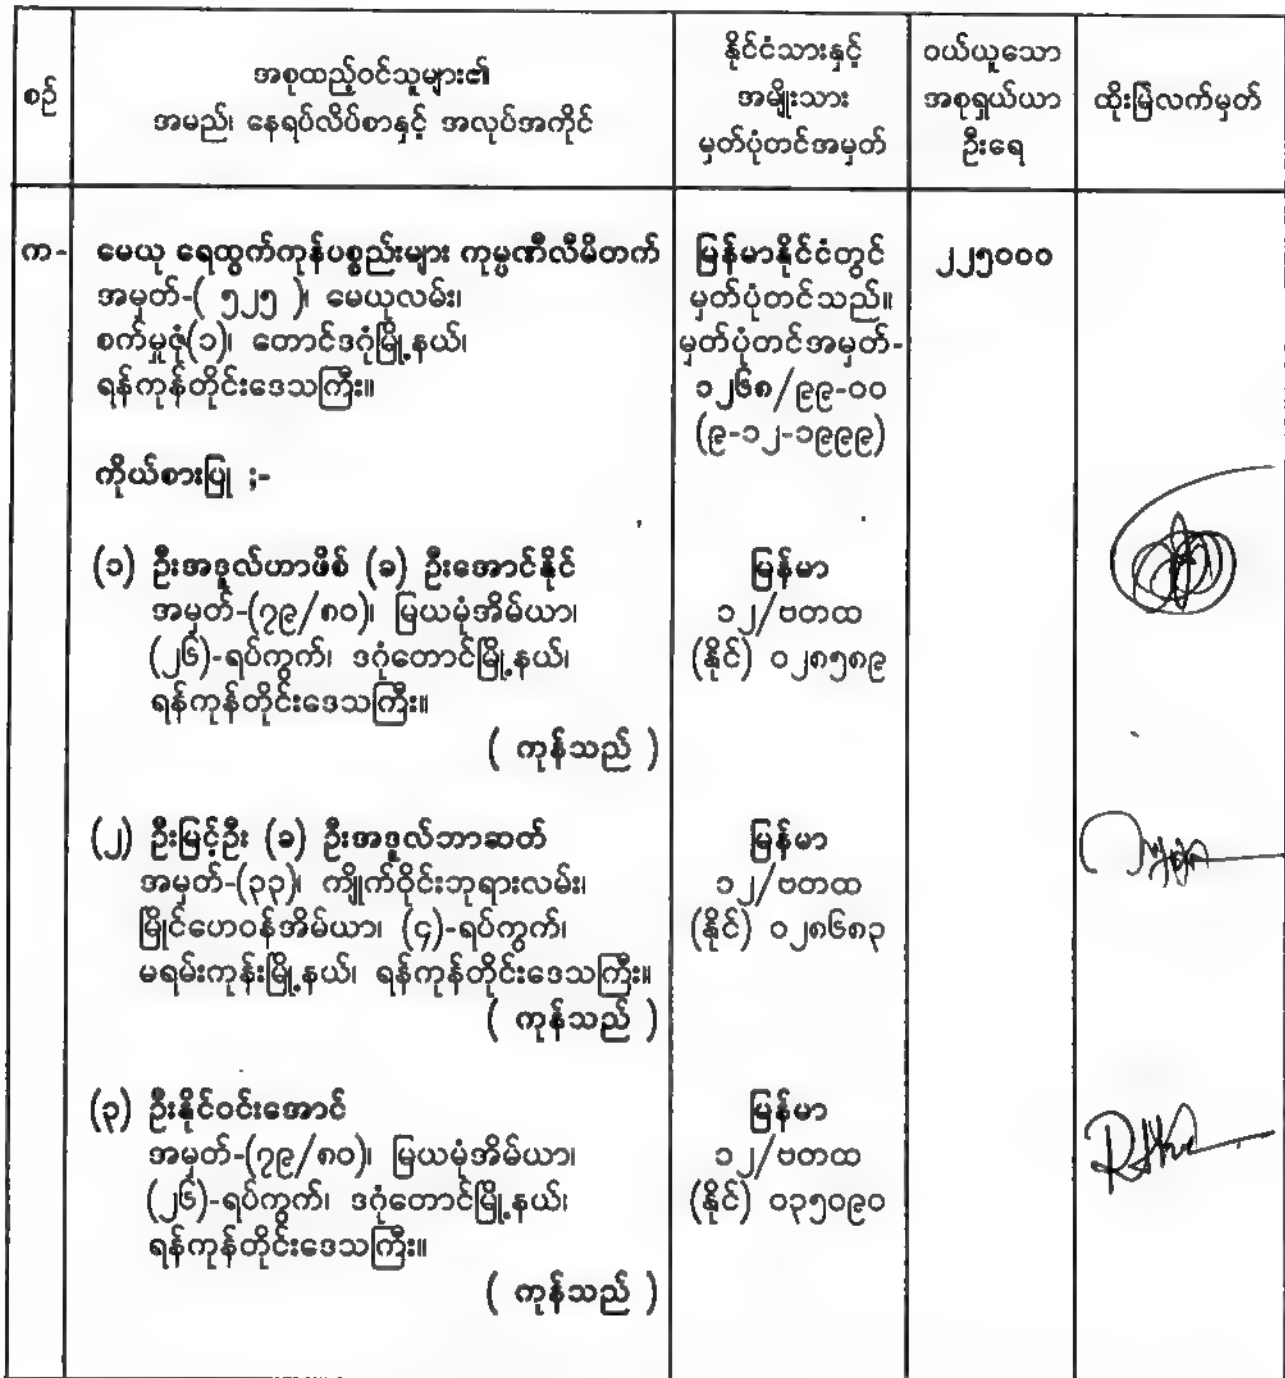 စဉ်
အစုထည့်ဝင်သူများ၏
အမည်၊ နေရပ်လိပ်စာနှင့် အလုပ်အကိုင်
နိုင်ငံသားနှင့်
အမျိုးသား
မှတ်ပုံတင်အမှတ်
ဝယ်ယူသော
အစုရှယ်ယာ
ဦးရေ
ထိုးမြဲလက်မှတ်
က-
မေယု ရေထွက်ကုန်ပစ္စည်းများ ကုမ္ပဏီလီမိတက်
အမှတ်-( ၅၂၅ )၊ မေယုလမ်း၊
စက်မှုဇုံ(၁)၊ တောင်ဒဂုံမြို့နယ်၊
ရန်ကုန်တိုင်းဒေသကြီး။
မြန်မာနိုင်ငံတွင်
မှတ်ပုံတင်သည်။
မှတ်ပုံတင်အမှတ်-
၁၂၆၈/၉၉-၀၀
(၉-၁၂-၁၉၉၉)
၂၂၅၀၀၀
ကိုယ်စားပြု ;-
(၁) ဦးအဒူလ်ဟာဖိစ် (ခ) ဦးအောင်နိုင်
အမှတ်-(၇၉/၈၀)၊ မြယမုံအိမ်ယာ၊
(၂၆)-ရပ်ကွက်၊ ဒဂုံတောင်မြို့နယ်၊
ရန်ကုန်တိုင်းဒေသကြီး။
( ကုန်သည် )
မြန်မာ
၁၂/ဗတထ
(နိုင်) ၀၂၈၅၈၉
(၂) ဦးမြင့်ဦး (ခ) ဦးအဒူလ်ဘာဆတ်
အမှတ်-(၃၃)၊ ကျိုက်ဝိုင်းဘုရားလမ်း၊
မြိုင်ဟေဝန်အိမ်ယာ၊ (၄)-ရပ်ကွက်၊
မရမ်းကုန်းမြို့နယ်၊ ရန်ကုန်တိုင်းဒေသကြီး။
( ကုန်သည် )
မြန်မာ
၁၂/ဗတထ
(နိုင်) ၀၂၈၆၈၃
(၃) ဦးနိုင်ဝင်းအောင်
အမှတ်-(၇၉/၈၀)၊ မြယမုံအိမ်ယာ၊
(၂၆)-ရပ်ကွက်၊ ဒဂုံတောင်မြို့နယ်၊
ရန်ကုန်တိုင်းဒေသကြီး။
( ကုန်သည် )
မြန်မာ
၁၂/ဗတထ
(နိုင်) ၀၃၅၀၉၀